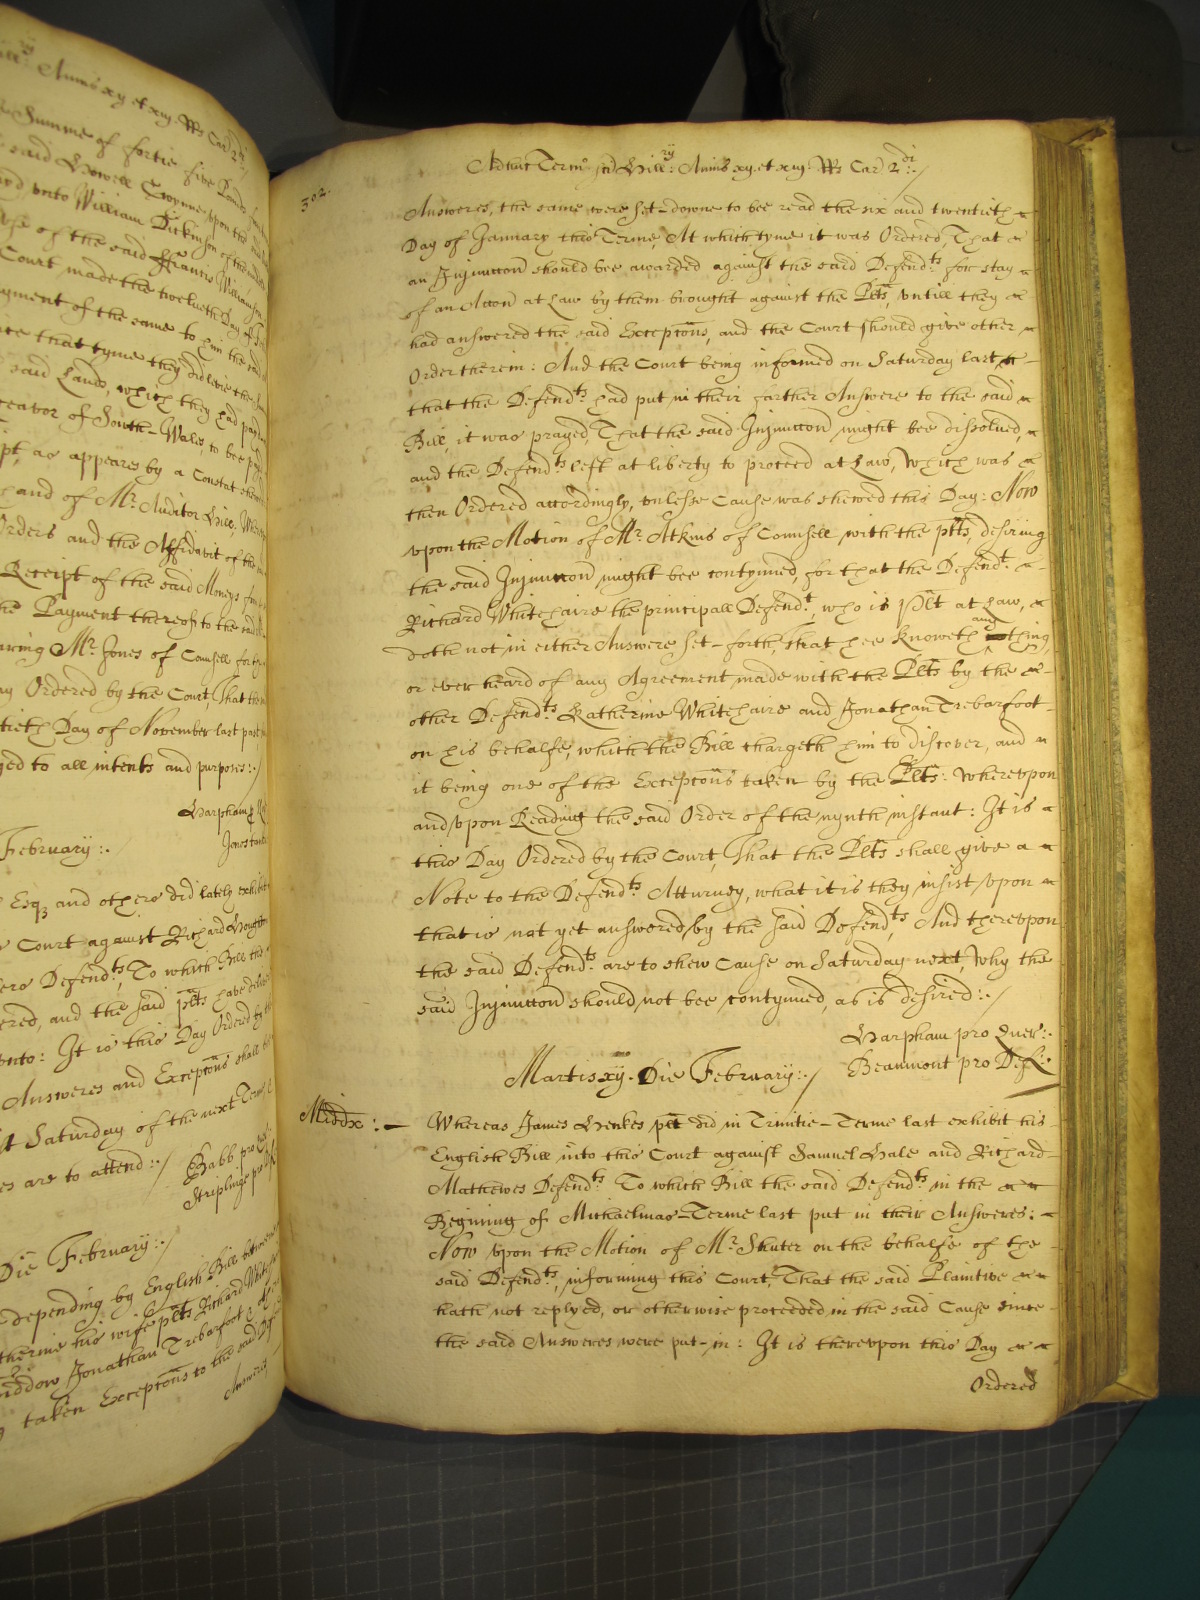 Annis xij et xiij R Rs Car 2di
Summe of fortie five Pounds
said Howell Gwynne upon the
unto William Dickinson of the
use of the said ffrancis Williamson
Court made the twelueth Day of
ayment of the same to him the said
that tyme they did levie the
said Lands, which they had paid
ceavor of South-Wales, to bee
pt, as appeares by a Constat
hand of Mr. Auditor Hill,
Orders and the Affidavit of the
Receipt of the said Moneys
the Payment thereof to the said
earing Mr. Jones of Counsell for
Ordered by the Court, That the
tieth Day of November last past
ged to all intents and purposes:/
Harpham
Jones
February:/
Esqʒ and others did lately exhibit
Court against Richard Houghton
Defendts, To which Bill the
ered, and the said plts have
unto: It is this Day Ordered by the
Answeres and Excepcons shall
Saturday of the next Terme
es are to attend:/
Babb pro
Striplinge pro
Die February:/
depending by English Bill betweene
therine his wife plts Richard White
iddow Jonathan Trebarfoot &
taken Excepcons to the said
Answeres
302.
Adhuc Term sci Hill: Annis xij et xiij Rs Car 2di:/
Answeres, the same were set-downe to bee read the six and twentieth
Day of January this Terme, At which tyme it was Ordered, That
an Injuncion should bee awarded against the said Defendts for stay
of an Accon at Law by them brought against the Plts, untill they
had answered the said Excepcons, and the Court should give other
Order therein: And the Court being informed on Saturday last
that the Defendts had put in their farther Answere to the said
Bill, it was prayed, That the said Injuncion might bee dissolved,
and the Defendts left at liberty to proceed at Law, Which was
then Ordered accordingly, unlesse Cause was shewed this Day: Now
upon the Motion of Mr. Atkins of Counsell with the plts, desiring
the said Injuncion might bee contynued, for that the Defendt.
Richard Whitehaire the principall Defendt, who is Plt at Law,
doth not in either Answere set-forth, that hee knoweth any thing,
or ever heard of any Agreement made with the Plts by the
other Defendts. Katherine Whitehaire and Jonathan Trebarfoot
on his behalfe, which the Bill chargeth him to discover, and
it being one of the Excepcons taken by the Plts: Whereupon
and upon Reading the said Order of the nynth instant: It is
this Day Ordered by the Court, That the Plts shall give a
Note to the Defendts. Atturney, what it is they insist upon
that is not yet answered by the said Defendts, And thereupon
the said Defendts. are to shew Cause on Saturday next, Why the
said Injuncion should not bee contynued, as is desired:/
Harpham pro Quer:
Beaumont pro Def:
Martis xij. Die February:/
Middx:
Whereas James Henkes plt did in Trinitie-Terme last exhibit his
English Bill into this Court against Samuel Hale and Richard
Mathewes Defendts. To which Bill the said Defendts. in the
Begining of Michaelmas-Terme last put in their Answeres:
Now upon the Motion of Mr. Shuter on the behalfe of the
said Defendts, informing this Court, That the said Plaintive
hath not replyed, or otherwise proceeded in the said Cause since
the said Answeres were put-in: It is thereupon this Day
Ordered